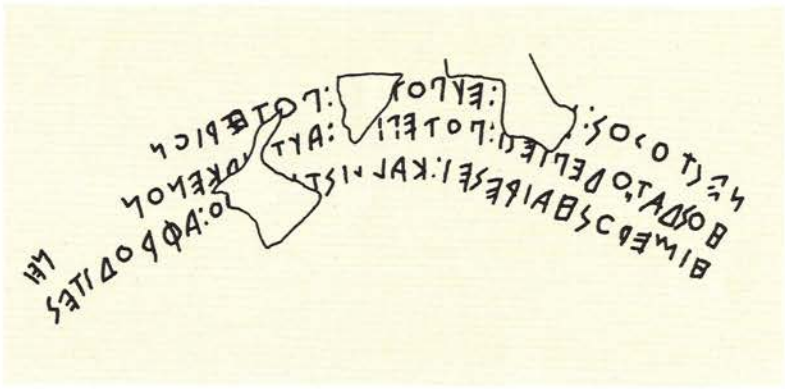 ΝΕΣΤΟΡΟΣ: :ΕΥΠΟΤ :ΠΟΤΕΡΙΟΝ
ΗΟΣΔΑΝΤΟΔΕΠΙΕΣΙ:ΠΟΤΕΡΙ :ΑΥΤΙΚΑΚΕΝΟΝ
ΗΙΜΕΡΟΣΗΑΙΡΕΣΕΙ:ΚΑΛΛΙΣΤ Ο:ΑΦΡΟΔΙΤΕΣ